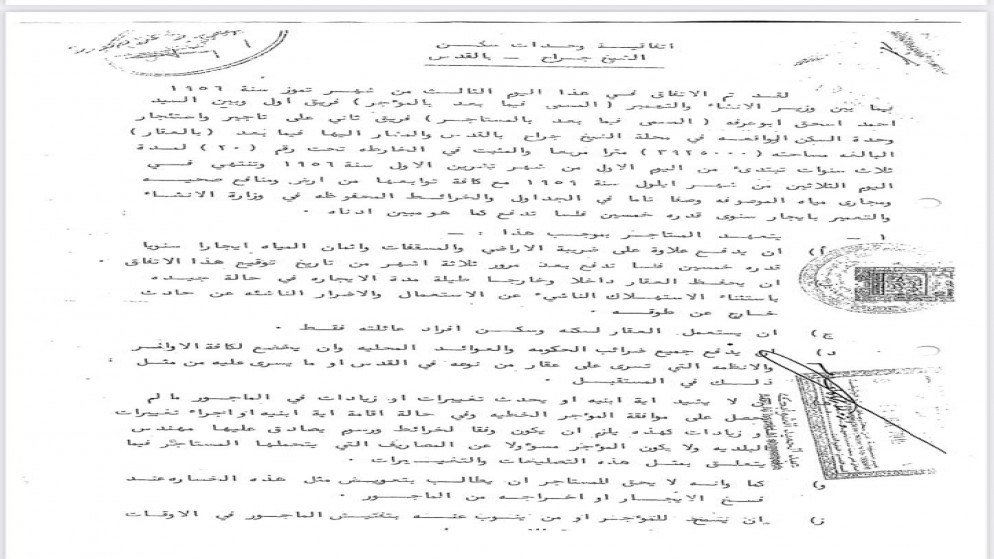 اتفاقية وحدات سكن
الشيخ جراح - بالقدس
لقد تم الاتفاق في هذا اليوم الثالث من شهر تموز سنة ١٩٥٦
فيما بين وزير الانشاء والتعمير ( المسمى فيما بعد بالمؤجر) فريق اول وبين السيد
احمد اسحق ابوعرفه ( المسمى فيما بعد بالمستأجر) فريق ثاني على تاجير واستئجار
وحدة السكن الواقعه في محلة الشيخ جراح بالقدس والمشار اليها فيما بعد (بالعقار)
البالغه مساحته ( ٣٩٢٥٠٠٠ ) مترا مربعا والمثبت في الخارطه تحت رقم (٢٠) لمدة
ثلاث سنوات تبتدئ من اليوم الاول من شهر تشرين الاول سنة ١٩٥٦ وتنتهي في
اليوم الثلاثين من شهر ايلول سنة ١٩٥٩ مع كافة توابعها من ارض ومنافع صحيه
ومجارى مياه الموصوفه وصفا تاما في الجداول والخرائط المحفوظه في وزارة الانشاء
والتعمير بايجار سنوى قدره خمسين فلسا تدفع كما هو مبين ادناه .
١ - يتعهد المستاجر بموجب هذا : -
أ) ان يدفع علاوة على ضريبة الاراضي والمسقفات واثمان المياه ايجارا سنويا
قدره خمسين فلسا تدفع بعد مرور ثلاثة اشهر من تاريخ توقيع هذا الاتفاق .
ان يحفظ العقار داخلا وخارجا طيلة مدة الايجاره في حالة جيده
باستثناء الاستهلاك الناشيء عن الاستعمال والاضرار الناشئه عن حادث
خارج عن طوقه .
ج) ان يستعمل العقار لسكنه وسكن افراد عائلته فقط .
د) ان يدفع جميع ضرائب الحكومه والعوائد المحليه وان يخضع لكافة الاوامر
والانظمه التي تسرى على عقار من نوعه في القدس او ما يسرى عليه من مثل
ذلك في المستقبل .
لا يشيد اية ابنيه او يحدث تغييرات او زيادات في الماجور ما لم
يحصل على موافقة المؤجر الخطيه وفي حالة اقامة اية ابنيه او اجراء تغييرات
او زيادات كهذه يلزم ان يكون وفقا لخرائط ورسم يصادق عليها مهندس
البلديه ولا يكون المؤجر مسؤولا عن المصاريف التي يتحملها المستاجر فيما
يتعلق بمثل هذه التصليحات والتغييرات .
و) كما وانه لا يحق للمستاجر ان يطالب بتعويض مثل هذه الخساره عند
فسخ الايجار او اخراجه من الماجور .
ز) ان يسمح للمؤجر او من ينوب عنه بتفتيش الماجور في الاوقات